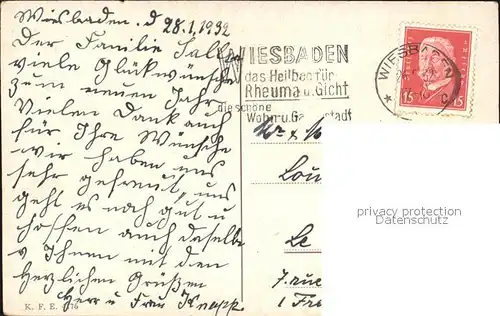 Wiesbaden. d 28.1.1932
Der Familie
viele Glückwünsche
zum neuen Jahr
Vielen Dank auch
für Ihre Wünsche
wir haben uns
sehr gefreut, uns
geht es noch gut u
hoffen auch dasselbe
v Ihnen mit den
Herzlichen Grüßen
Herr u Frau Knapp
K. F. E.
WIESBADEN
das Heilbad für
Rheuma u. Gicht
die schöne
Wohn u. Gartenstadt
WIESBAD
2
C
15 15
Lou
Le
7. rue
privacy protection
Datenschutz